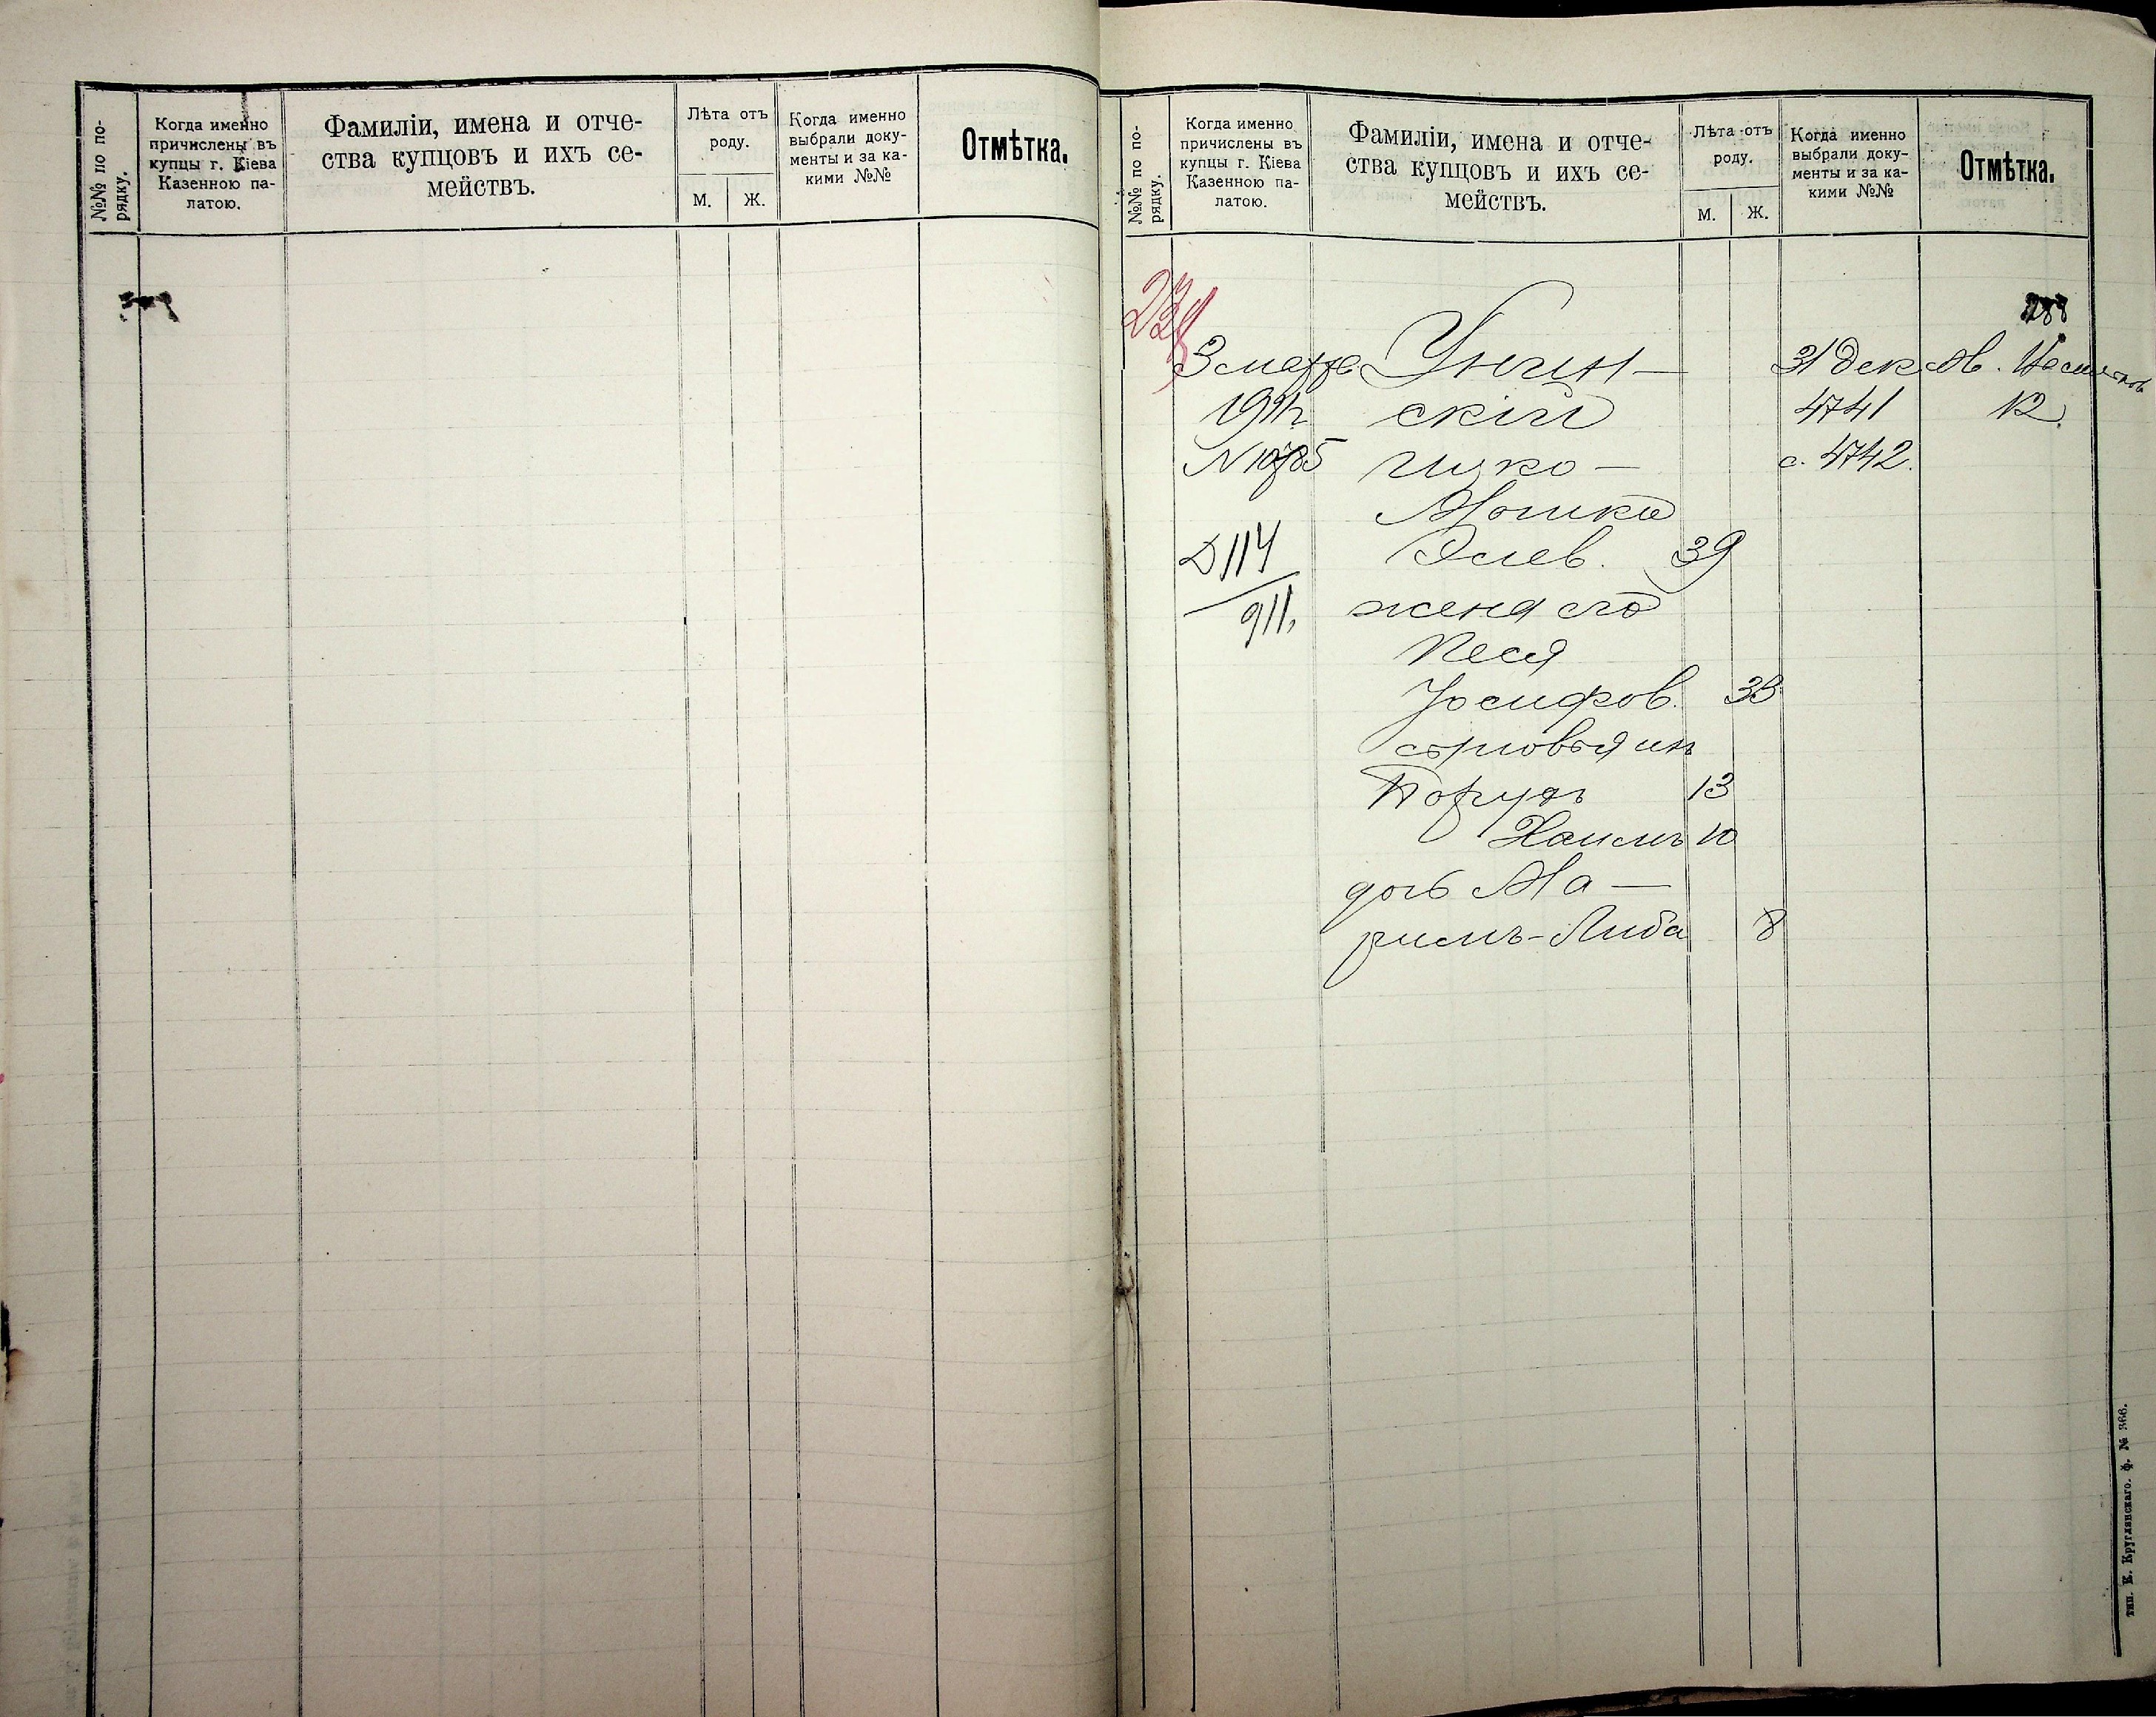 №№ по по-
рядку.
Когда именно
причислены въ
купцы г. Кіева
Казенною па-
латою.
Фамиліи, имена и отче-
ства купцовъ и ихъ се-
мействъ.
Лѣта отъ
роду.
М. Ж.
Когда именно
выбрали доку-
менты и за ка-
кими №№
Отмѣтка.
№№ по по-
рядку.
Когда именно
причислены въ
купцы г. Кіева
Казенною па-
латою.
Фамиліи, имена и отче-
ства купцовъ и ихъ се-
мействъ.
Лѣта отъ
роду.
М. Ж.
Когда именно
выбрали доку-
менты и за ка-
кими №№
Отмѣтка.
3 марта Унгин- 31 дек
ский 4741 12
N 10785 Ицко- с. 4742.
Мошко
D 114 Элев. 39
911. жена его
Песя
Іосифов. 33
сыновья ихъ
Борухъ 13
Хаимъ 10
дочь Ма-
римъ-Либа 8
тип. К. Круглянскаго. ф. № 366.